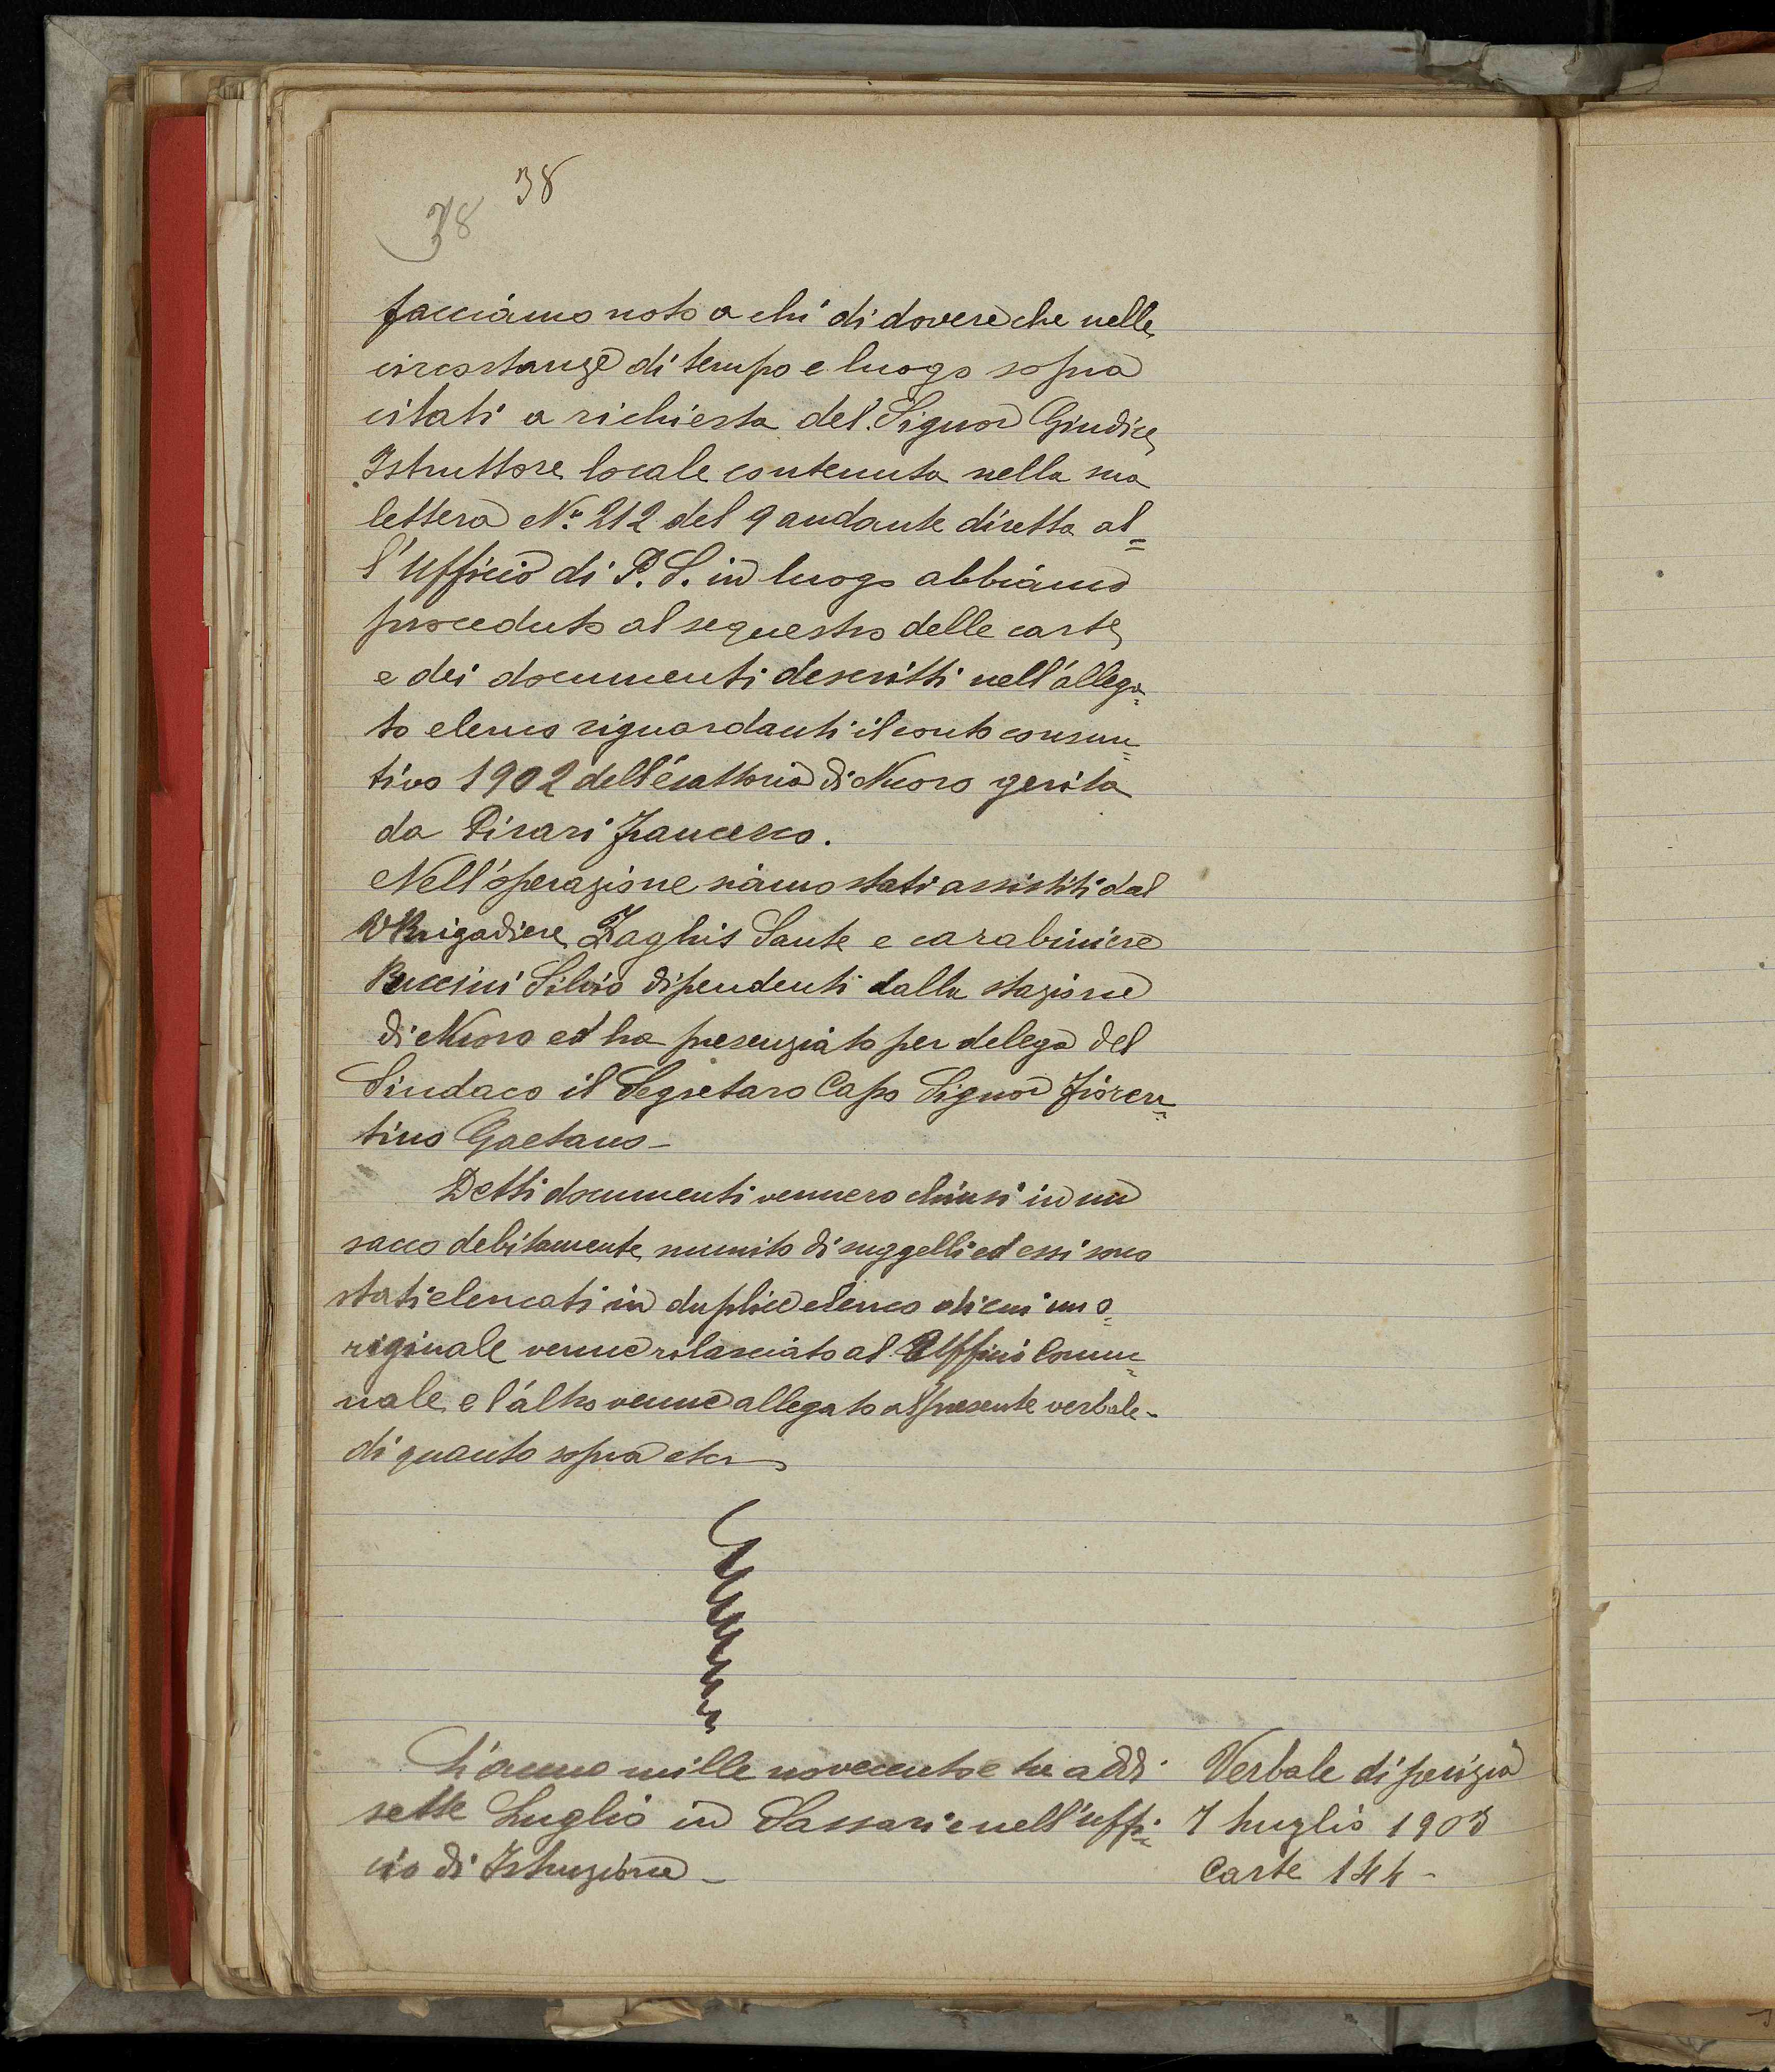 38
38
facciamo noto a chi di dovere che nelle
circostanze di tempo e luogo sopra
citati a richiesta del Signor Giudice
Istruttore locale contenuta nella sua
lettera N.º 212 del 9 andante diretta al=
l'Ufficio di P. S. in luogo abbiamo
proceduto al sequestro delle carte
e dei documenti descritti nell'allega=
to elenco riguardanti il conto consun=
tivo 1902 dell'esattoria di Nuoro gerita
da Pirari Francesco.
Nell'operazione siamo stati assistiti dal
V Brigadiere Zaghis Sante e carabiniere
Puccini Silvio dipendenti dalla stazione
di Nuoro ed ha presenziato per delega del
Sindaco il Segretaro Capo Signor Fioren=
tino Gaetano -
Detti documenti vennero chiusi in un
sacco debitamente munito di suggelli ed essi sono
stati elencati in duplice elenco di cui un o=
riginale venne rilasciato al Ufficio Comu=
nale e l'altro venne allegato al presente verbale -
di quanto sopra etc
L'anno mille novecento e tre addì
sette Luglio in Sassari e nell'uffi=
cio di Istruzione -
Verbale di perizia
7 Luglio 1903
Carte 144 -